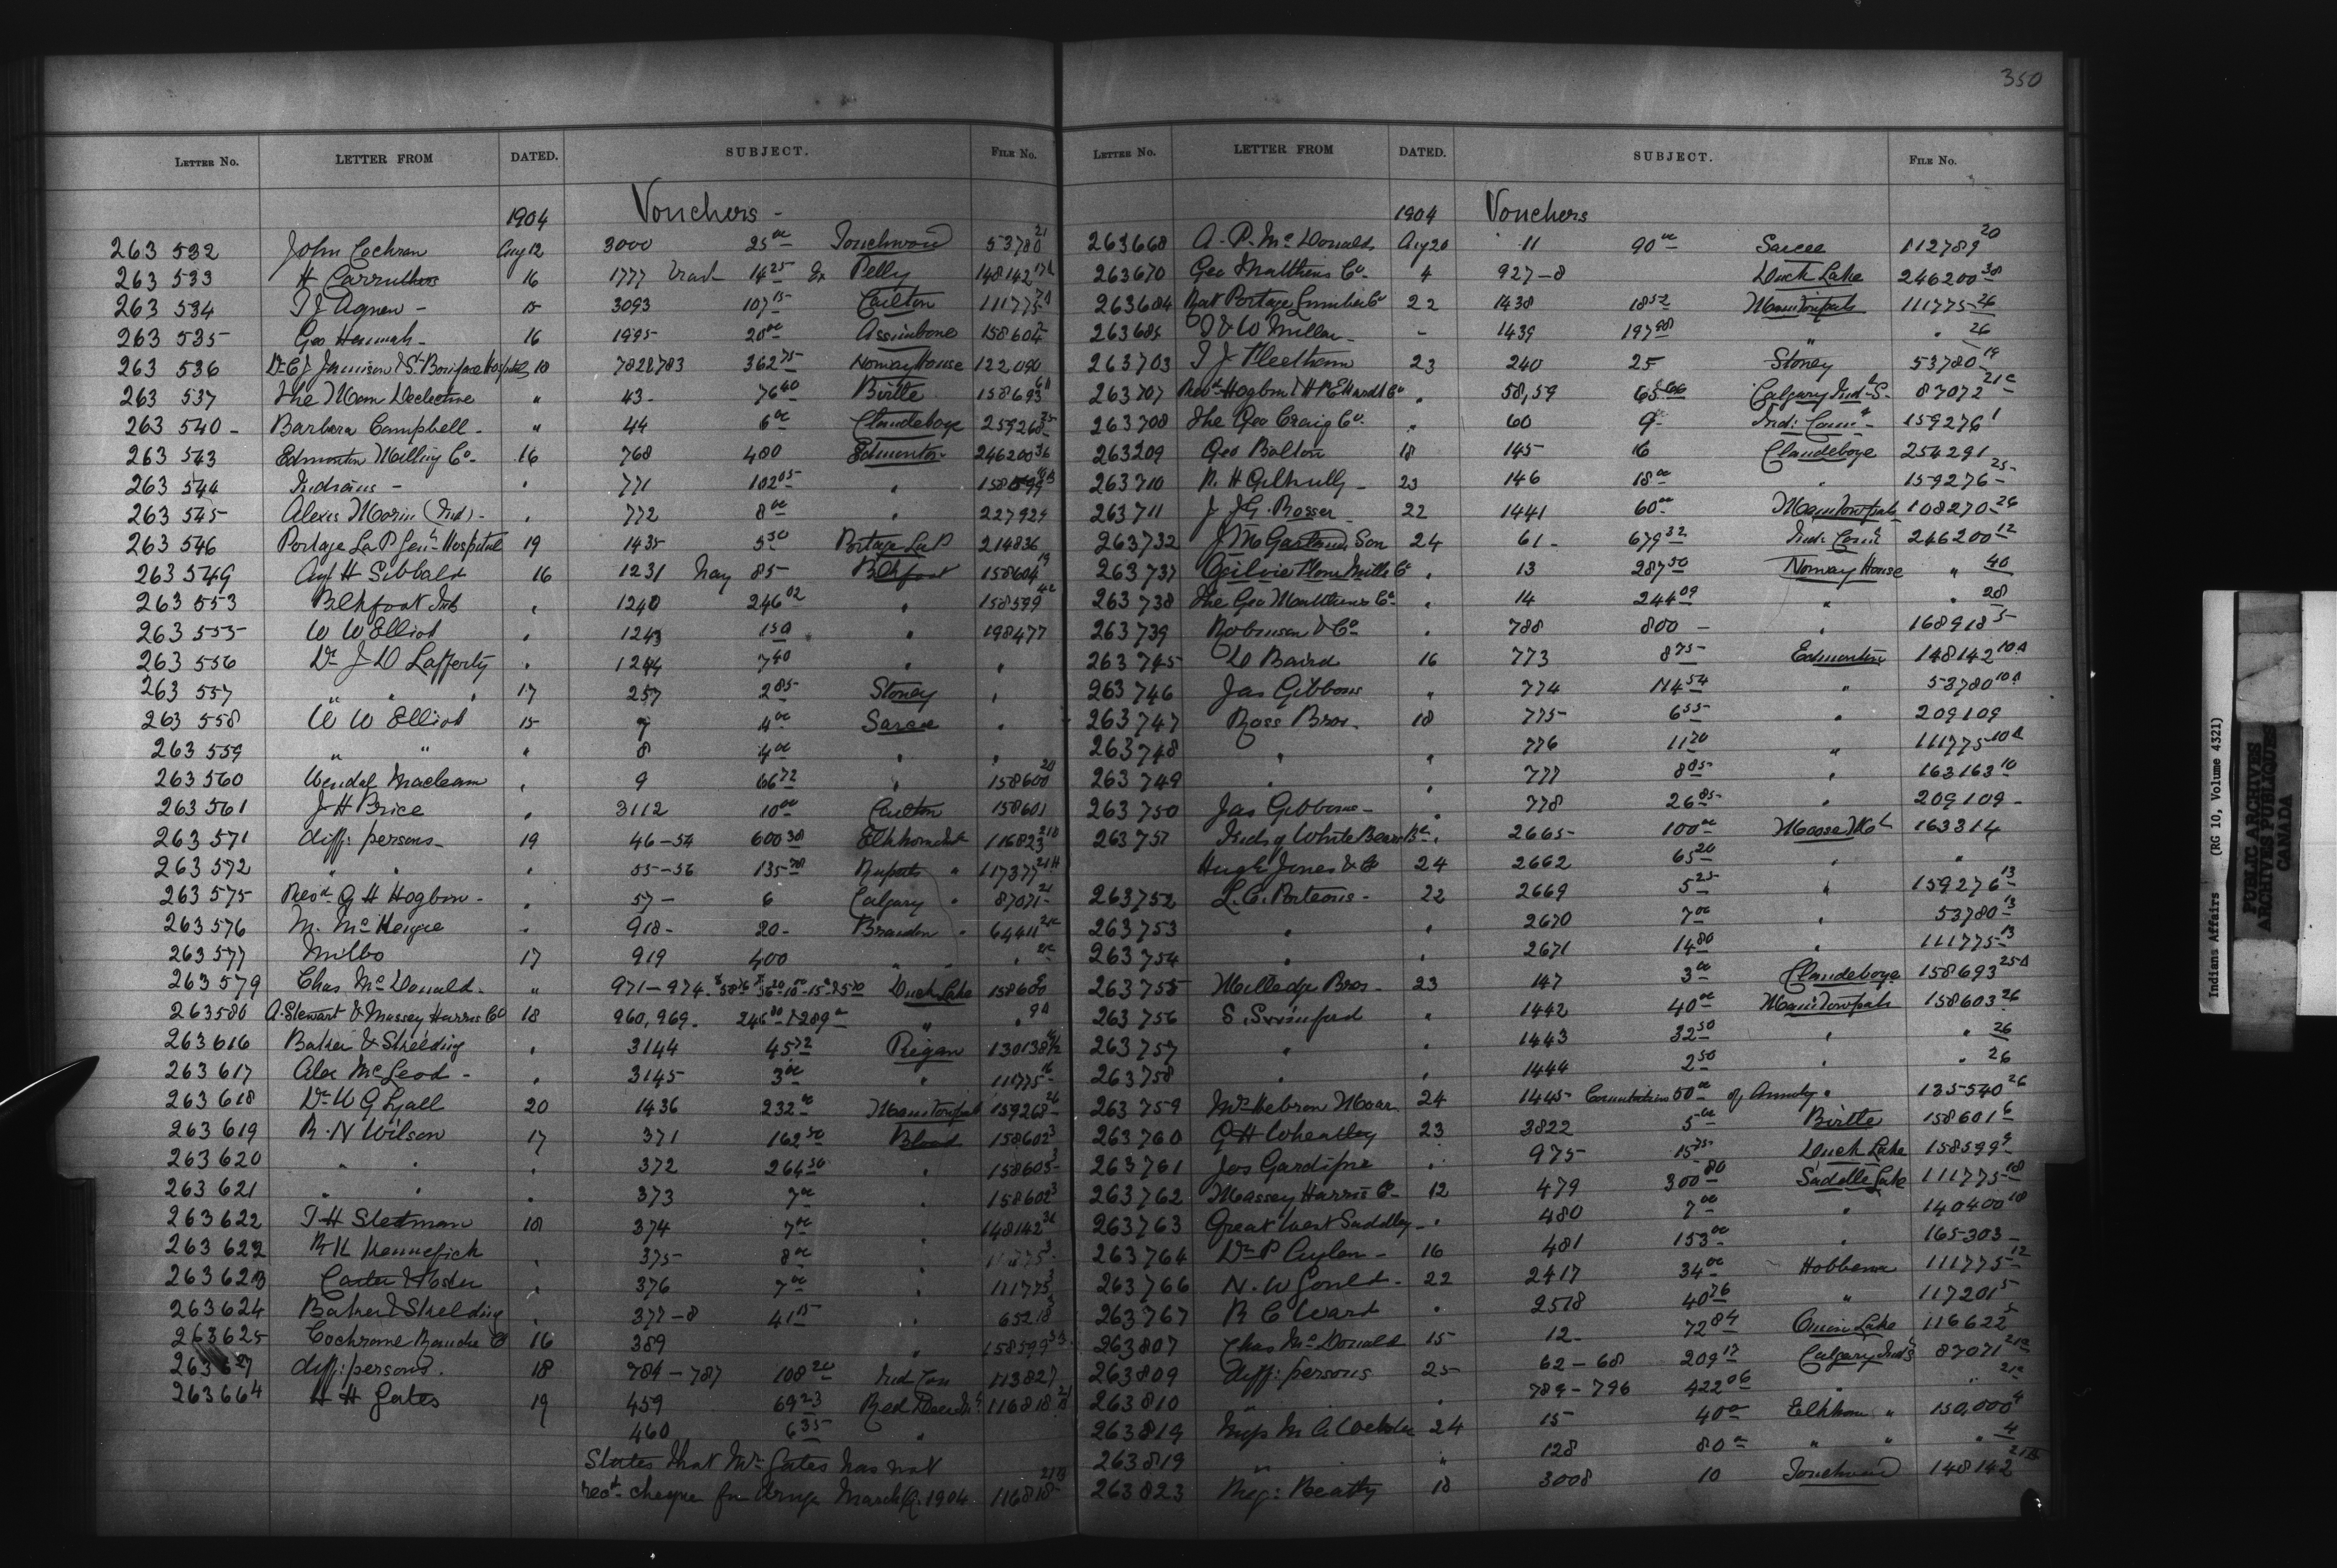 350
LETTER No. LETTER FROM DATED. SUBJECT. FILE No.
1904 Vouchers -
263 532 John Cochran Aug 12 3000 25 00 Touchwood 53780 21
263 533 H Carruthers 16 1777 14 25 Pelly 148142
263 534 T J Agnew - 15 3093 107 15 Carlton 111775
263 535 Geo Hannah - 16 1995 20 00 Assiniboine 158604
263 536 Dr C J Jamison & St Boniface Hospital 10 782&783 362 75 Norway House 122090
263 537 The Man Decleetive " 43 - 76 40 Birtle 158693
263 540 - Barbara Campbell - " 44 6 00 Clandeboye 259268 25
263 543 Edmonton Milling Co - 16 768 480 Edmonton 246200 36
263 544 Indians - " 771 102 05 " 158599
263 545 Alexis Morin (Ind) - " 772 8 00 " 227929
263 546 Portage La P. Gen Hospital 19 1435 5 50 Portage La P 214836
263 549 H Sibbald 16 1231 hay 85 - Blkfoot 158604 19
263 553 Blkfoot Ind " 1240 246 02 " 158599 42
263 555 W W Elliot " 1243 1 50 " 198477
263 556 Dr J D Lafferty " 1244 7 40 " "
263 557 " " " 17 257 2 85 Stoney "
263 558 W W Elliot 15 7 4 00 Sarcee "
263 559 " " " 8 4 00 " "
263 560 Wendel Maclean " 9 66 72 " 158600 20
263 561 J H Price " 3112 10 00 Carlton 158601
263 571 diff: persons - 19 46-54 600 38 Elkhorn Ind 116823 21B
263 572 " " " 55-56 135 78 Ruperts " 117377 21H
263 575 Revd G H Hogbin - " 57 - 6 Calgary " 87071 21
263 576 M. McKenzie " 918 - 20 - Brandon " 64411 21C
263 577 Milbo 17 919 400 " " "
263 579 Chas McDonald - " 971-974 Duck Lake 158600 9
263 580 A. Stewart & Massey Harris Co 18 960, 969. 246 00 & 289 00 " " 9A
263 616 Baker & Shelding " 3144 45 72 Piegan 130138
263 617 Alex McLeod - " 3145 3 00 " 111775
263 618 Dr W G Lyall 20 1436 232 00 Manitowpah 159268 26
263 619 R. N Wilson 17 371 162 50 Blood 158602 3
263 620 " " " 372 264 50 " 158605 3
263 621 " " " 373 7 00 " 158602 3
263 622 T H Stedman 18 374 7 00 " 148142
263 622 R K Kennefick " 375 8 00 " 11775 3
263 623 Carter & Hosler " 376 7 00 " 111775 3
263 624 Baker & Shelding " 377-8 41 15 " 65218
263 625 Cochrane Ranche Co 16 389 " 158599
263 627 diff: persons. 18 784-787 108 20 113827
263 664 H H Gates 19 459 69 23 Red Deer 116818 21
460 6 35 "
States that Mr Gates has not
recd cheque for March Q. 1904 116818 21B
LETTER No. LETTER FROM DATED. SUBJECT. FILE No.
1904 Vouchers
263668 A. P. McDonald Aug 20 11 90 00 Sarcee 112789 20
263670 Geo Matthews Co. 4 927-8 Duck Lake 246200 38
263684 Rat Portage Lumber Co 22 1438 18 52 Manitowpah 111775 26
263685 J & W Millan - 1439 197 98 " " 26
263703 T J Fleetham 23 240 25 Stoney 53780 19
263707 Revd Hogbin & H R Edwards Co " 58, 59 65 00 Calgary Indl S. 87072 21C
263708 The Geo Craig Co. " 60 9 Ind: Comr 159276 1
263209 Geo Bolton 18 145 16 Clandeboye 254291
263710 R. H Gilhully - 23 146 18 00 " 159276 25
263711 J J G. Rosser 22 1441 60 00 Manitowpah 108270 26
263732 J M Garland Son 24 61 - 679 32 Ind: Comr 246200 12
263737 Ogilvie Flour Mills Co " 13 287 50 Norway House " 40
263738 The Geo Matthews Co " 14 244 09 " " 28
263739 Robinson & Co " 788 800 - " 168918 5
263745 D Baird 16 773 8 75 Edmonton 148142 10A
263746 Jas Gibbons " 774 114 54 " 53780 10A
263747 Ross Bros. 18 775 6 55 " 209109
263748 " " 776 11 70 " 111775 10A
263749 " " 777 8 05 " 163163 10
263750 Jas Gibbons - " 778 26 85 " 209109 -
263751 Inds of White Bears Bd " 2665 100 00 Moose Mt 163314
Hugh Jones & Co 24 2662 65 20 " "
263752 L. C. Porteous - 22 2669 5 25 " 159276 13
263753 " " 2670 7 00 " 53780 13
263754 " " 2671 14 80 " 111775 13
263755 Milledge Bros - 23 147 3 00 Clandeboye 158693 25A
263756 S. Swinford " 1442 40 00 Manitowpah 158603 26
263757 " " 1443 32 50 " " 26
263758 " " 1444 2 50 " " 26
263759 Mrs Hebron Moar 24 1445 Commutation 50 00 of Annuity " 135540 26
263760 G H Wheatley 23 3822 5 00 Birtle 158601 6
263761 Jos Gardipie " 975 15 75 Duck Lake 158599 9
263762 Massey Harris Co - 12 479 300 80 Saddle Lake 111775 18
263763 Great West Saddlery - " 480 7 00 " 140400 18
263764 Dr P Aylen - 16 481 153 00 " 165303 -
263766 N. W Gould - 22 2417 34 00 Hobbema 111775 12
263767 R C Ward " 2518 40 76 " 117201 5
263807 Chas McDonald 15 12 - 72 84 Onion Lake 116622 5
263809 diff: persons 25 62-68 209 17 Calgary Ind S 87071 21C
263810 " " 789-796 422 06 " " 21C
263819 Miss M A Webster 24 15 40 00 Elkhorn " 150,000 4
263819 " " 128 80 00 " " " 4
263823 Beatty 18 3008 10 Touchwood 148142
Indians Affairs (RG 10, Volume 4321)
PUBLIC ARCHIVES
ARCHIVES PUBLIQUES
CANADA